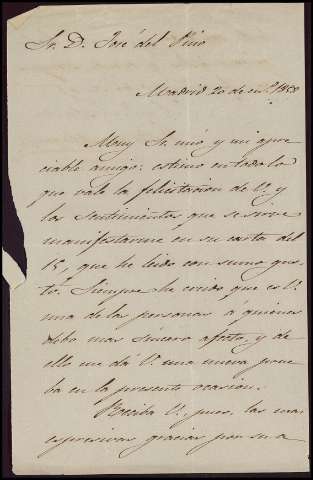 Sr. D. José del Pino
Madrid 20 de en.o 1858
Muy Sr. mio y mi apre
ciable amigo: estimo en todo lo
que vale la felicitacion de V. y
los sentimientos que se sirve
manifestarme en su carta del
15, que he leido con sumo gus
to. Siempre he creido que es V.
una de las personas á quienes
debo mas sincero afecto, y de
ello me dá V. una nueva prue
ba en la presente ocasion.
Reciba V., pues, las mas
espresivas gracias por su a